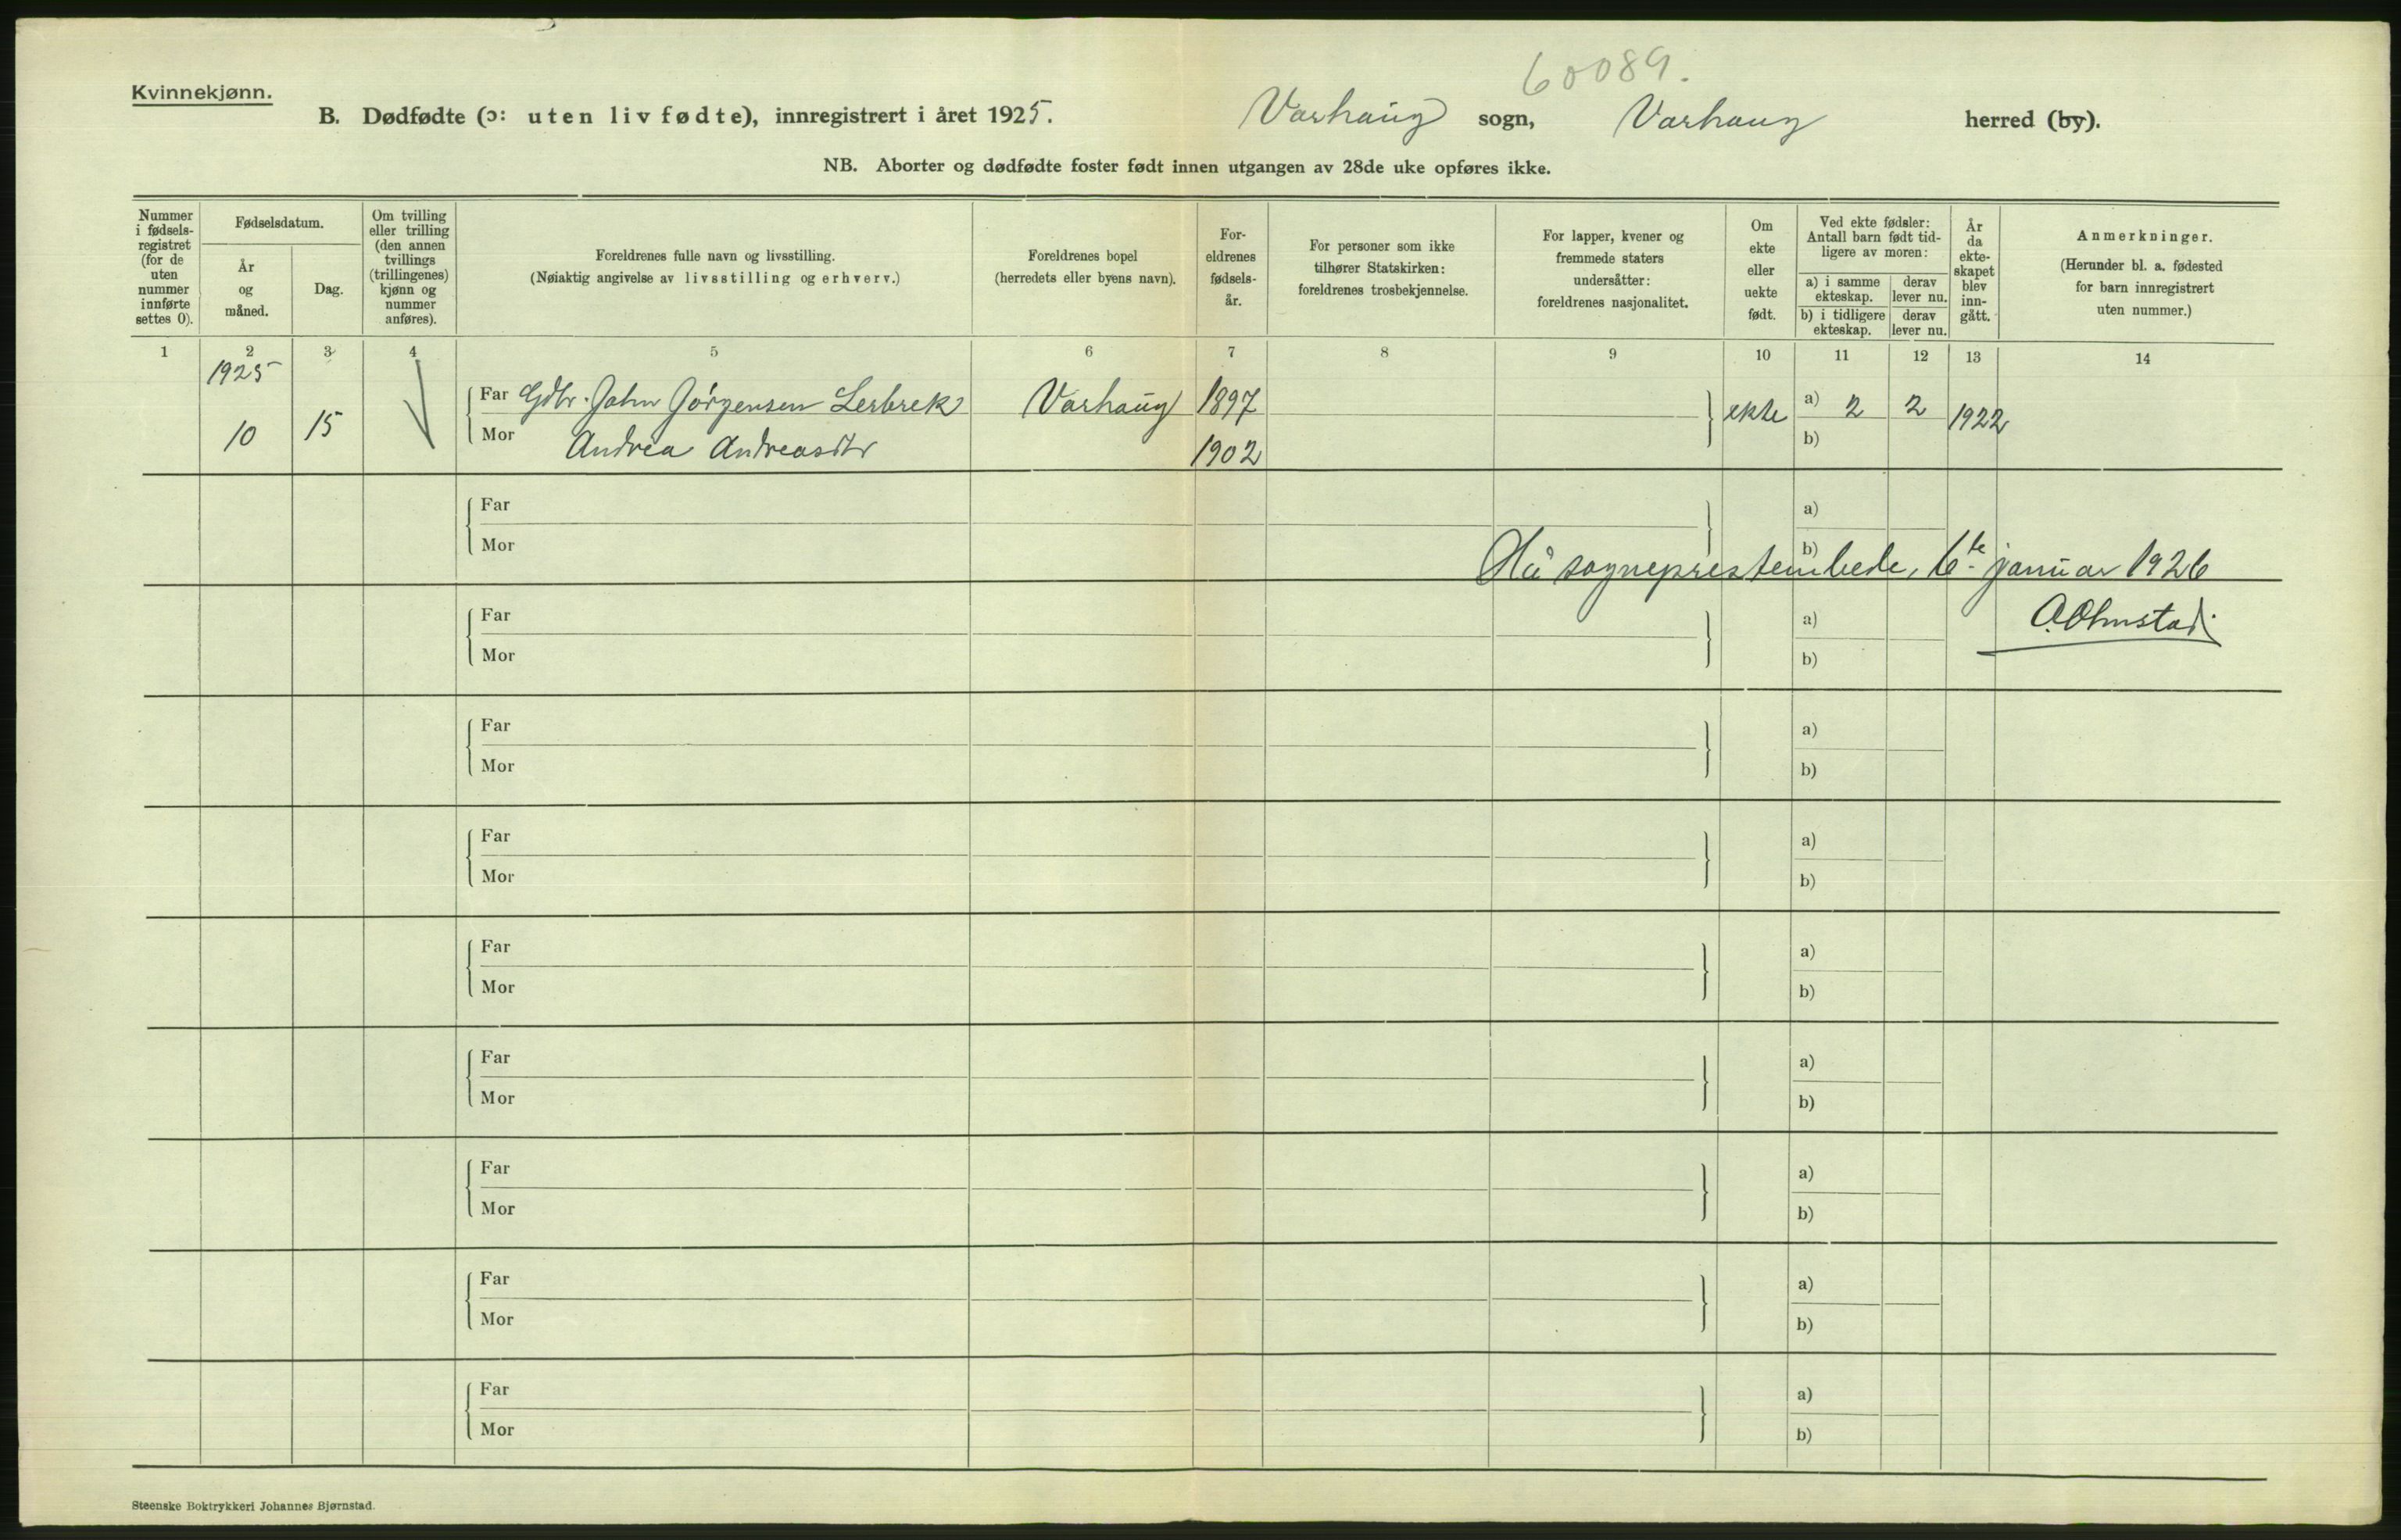 60089.
Kvinnekjønn.
B. Dødfødte (ɔ: uten liv fødte), innregistrert i året 1925. Varhaug sogn, Varhaug herred (by).
NB. Aborter og dødfødte foster født innen utgangen av 28de uke opføres ikke.
Nummer
i fødsels-
registret
(for de
uten
nummer
innførte
settes 0).
Fødselsdatum.
År
og
måned.
Dag.
Om tvilling
eller trilling
(den annen
tvillings
(trillingenes)
kjønn og
nummer
anføres).
Foreldrenes fulle navn og livsstilling.
(Nøiaktig angivelse av livsstilling og erhverv.)
Foreldrenes bopel
(herredets eller byens navn).
For-
eldrenes
fødsels-
år.
For personer som ikke
tilhører Statskirken:
foreldrenes trosbekjennelse.
For lapper, kvener og
fremmede staters
undersåtter:
foreldrenes nasjonalitet.
Om
ekte
eller
uekte
født.
Ved ekte fødsler:
Antall barn født tid-
ligere av moren:
a) i samme
ekteskap.
derav
lever nu.
b) i tidligere
ekteskap.
derav
lever nu.
År
da
ekte-
skapet
blev
inn-
gått.
Anmerkninger.
(Herunder bl. a. fødested
for barn innregistrert
uten nummer.)
1 2 3 4 5 6 7 8 9 10 11 12 13 14
1925
Far Gdbr. John Jørgensen Lerbrek Varhaug 1897 ekte a) 2 2 1922
10 15 Mor Andrea Andreasdtr 1902 b)
Far a)
Mor b)
Hå sogneprestembede, 6te januar 1926
A. Ohmstad
Far a)
Mor b)
Far a)
Mor b)
Far a)
Mor b)
Far a)
Mor b)
Far a)
Mor b)
Far a)
Mor b)
Far a)
Mor b)
Far a)
Mor b)
Steenske Boktrykkeri Johannes Bjørnstad.